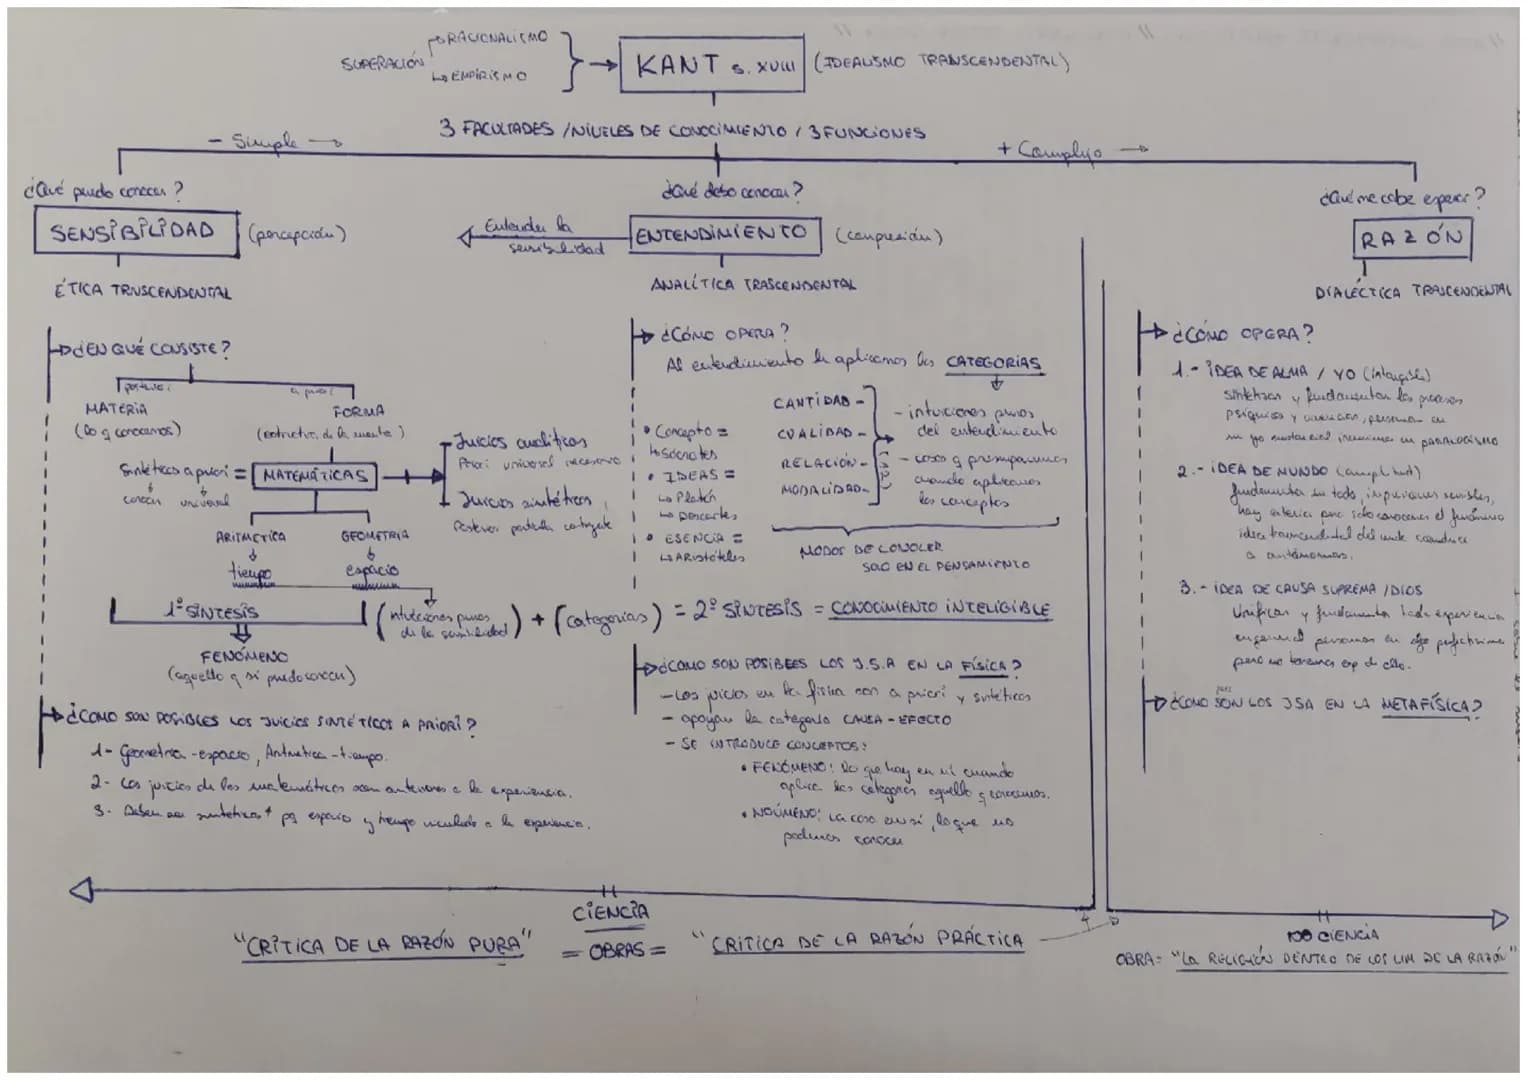 SUPERACIÓN
RACIONALISMO
EMPIRISMO
KANT s. XVIII (IDEALISMO TRANSCENDENTAL)
3 FACULTADES / NIVELES DE CONOCIMIENTO / 3 FUNCIONES
- Simple
+ Complejo
¿Qué puedo conocer?
SENSIBILIDAD (percepción)
ÉTICA TRNSCENDENTAL
¿EN QUÉ CONSISTE?
a priori
MATERIA
(lo q conocemos)
FORMA
(estructura de la mente)
Sintéticos a priori = MATEMÁTICAS
conocer universal
Juicios analíticos
Priori universal necesario
Juicios sintéticos
ARITMETICA
GEOMETRIA
tiempo
espacio
1ª SÍNTESIS (intuiciones puras de la sensibilidad) + (categorías) = 2ª SÍNTESIS = CONOCIMIENTO INTELIGIBLE
FENÓMENO
(aquello q si puedo conocer)
¿COMO SON POSIBLES LOS JUICIOS SINTÉTICOS A PRIORI?
1- Geometria - espacio, Aritmetica - tiempo.
2- Los juicios de las matemáticas son anteriores a la experiencia.
3- Deben ser sintéticos pq espacio y tiempo vinculado a la experiencia.
¿Qué debo conocer?
Entender la
sensibilidad
ENTENDIMIENTO (compresión)
ANALÍTICA TRASCENDENTAL
¿CÓMO OPERA?
Al entendimiento le aplicamos las CATEGORIAS
CANTIDAD -
CUALIDAD -
RELACIÓN -
MODALIDAD -
- intuiciones puras
del entendimiento
- cosas q presuponemos
cuando aplicamos
los conceptos
• Concepto =
Sócrates
• IDEAS =
Platón
Descartes
• ESENCIA =
Aristóteles
MODOS DE CONOCER
SOLO EN EL PENSAMIENTO
¿COMO SON POSIBEES LOS J.S.A EN LA FÍSICA?
- Los juicios en la física son a priori y sintéticos
- apoyan la categoría CAUSA - EFECTO
- SE INTRODUCE CONCEPTOS:
• FENÓMENO: lo que hay en mí cuando
aplica las categorías aquello q conocemos.
• NOÚMENO: La cosa en sí, lo que no
podemos conocer
¿Qué me cabe esperar?
RAZÓN
DIALÉCTICA TRASCENDENTAL
¿CÓMO OPERA?
1.- IDEA DE ALMA / YO (intangible)
sintetizan y fundamentan los procesos
psíquicos y vivencias, pensamos en
un yo sustancial PARALOGISMO
2.- IDEA DE MUNDO
fundamenta un todo, impresiones sensibles,
solo conocemos el fenómeno
idea transcendental del mundo conduce
a antinomias.
3.- IDEA DE CAUSA SUPREMA / DIOS
Unifican y fundamenta toda experiencia
en general pensamos en algo perfectísimo
pero no tenemos exp de ello.
¿COMO SON LOS JSA EN LA METAFÍSICA?
CIENCIA
"CRÍTICA DE LA RAZÓN PURA" = OBRAS = "CRITICA DE LA RAZÓN PRÁCTICA
NO CIENCIA
OBRA = "LA RELIGIÓN DENTRO DE LOS LIM DE LA RAZÓN"